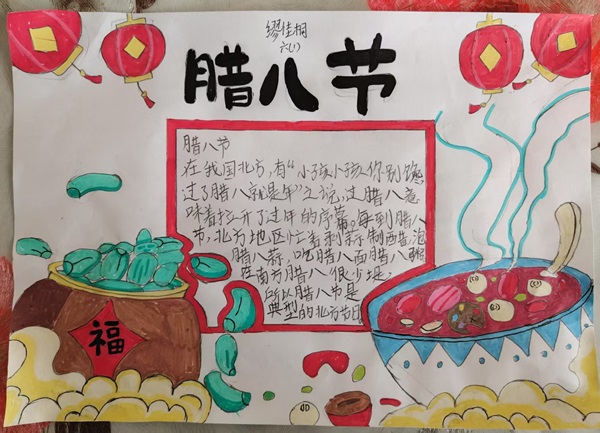 缪佳桐
六(1)
腊八节
腊八节
在我国北方,有“小孩小孩你别馋,
过了腊八就是年”之说,过腊八意
味着拉开了过年的序幕。每到腊八
节,北方地区忙着剥蒜制醋,泡
腊八蒜,吃腊八面腊八粥
在南方腊八很少提,
所以腊八节是
典型的北方节日
福